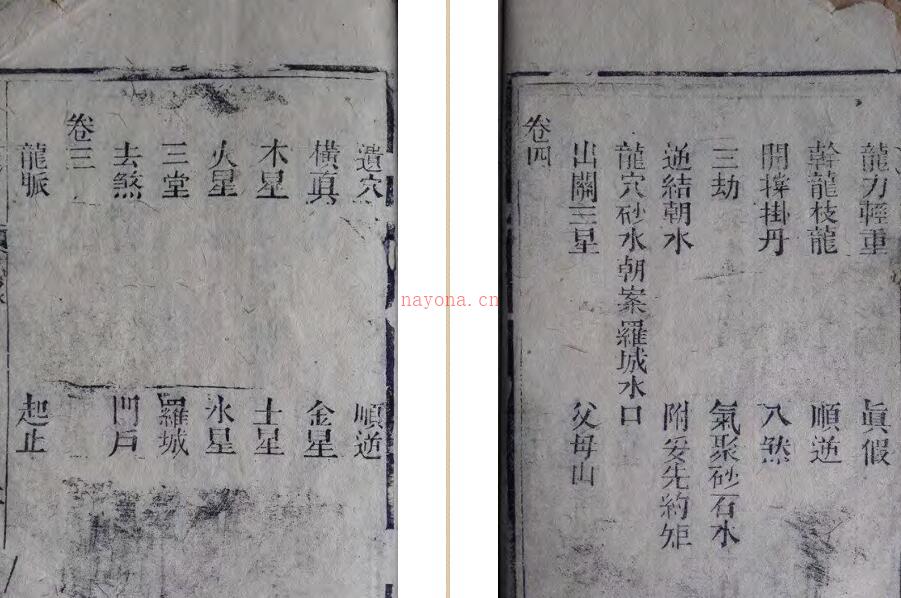 遺穴 順逆
橫 金星
木星 土星
火星 水星
三堂 羅城
去煞 門戶
卷三
龍脈 起止
龍力輕重 眞假
幹龍枝龍 順逆
開掛丹 八煞
三劫 氣聚砂石水
逆結朝水 附妥先約矩
龍穴砂水朝案羅城水口
出關三星 父母山
卷四
nayona.cn